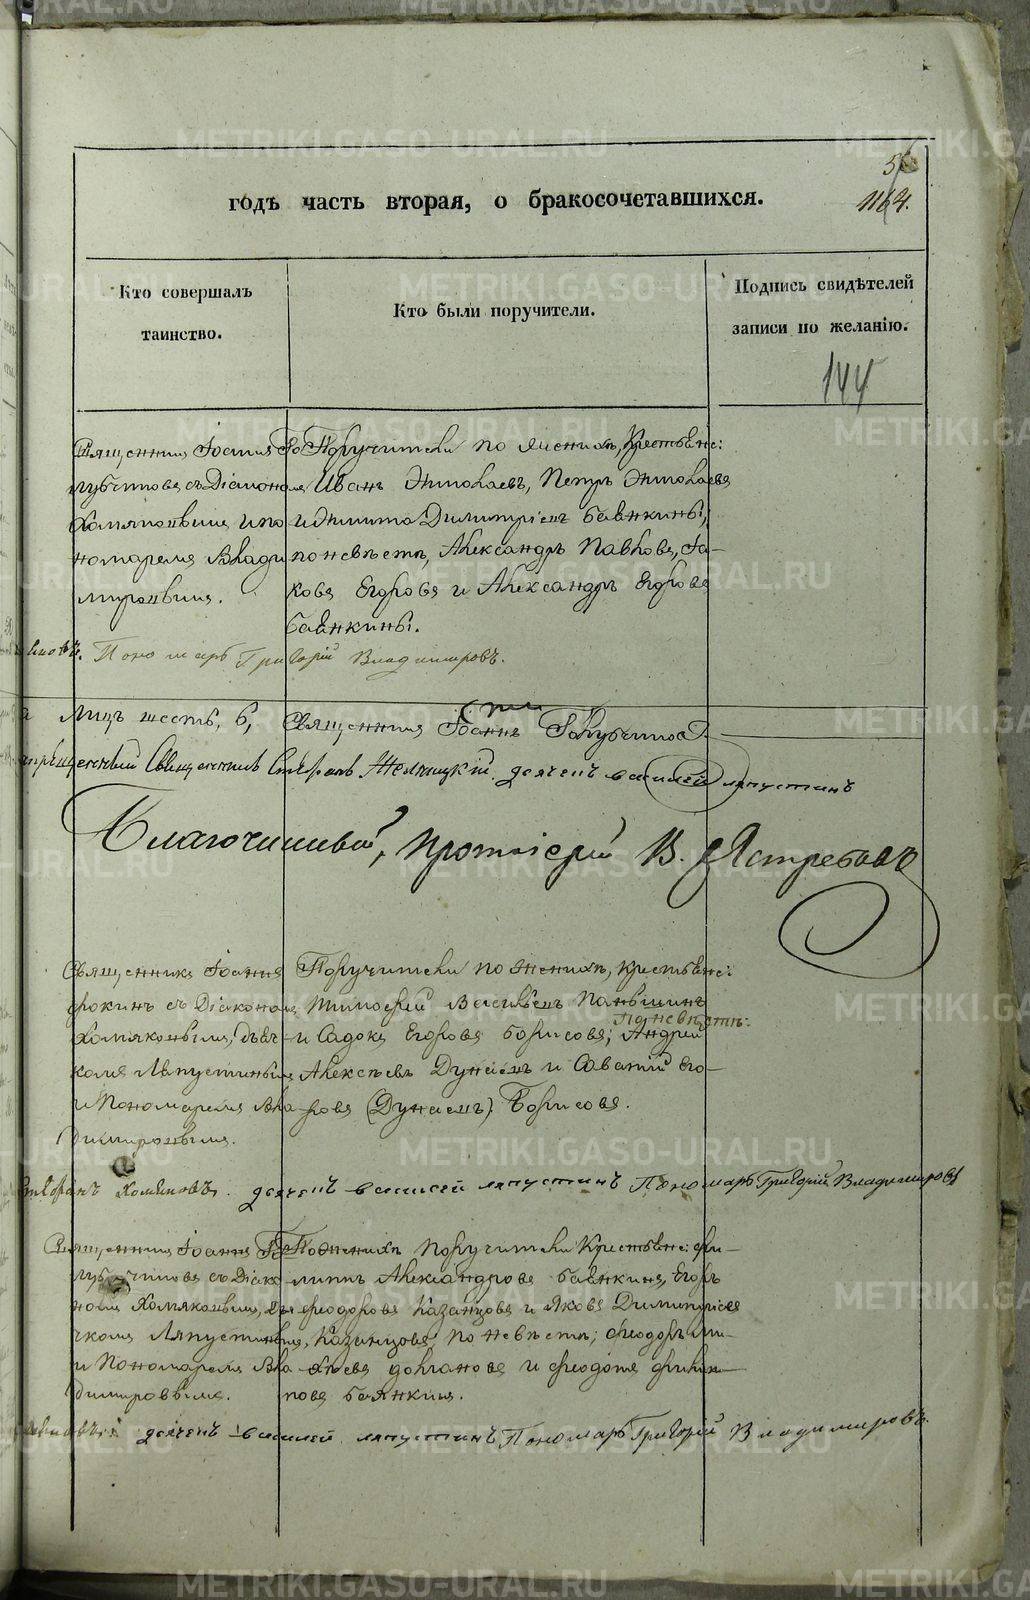 1164.
годъ часть вторая, о бракосочетавшихся.
Кто совершалъ
таинство.
Кто были поручители.
Подпись свидѣтелей
записи по желанію.
144
Священникъ Іоаннъ Го
лубчиковъ съ Діакономъ
Хомяковымъ и по
номаремъ Влади
мировымъ.
Поручители по женихѣ, Крестьяне:
Иванъ Николаевъ, Петръ Николаевъ
и Никита Димитріевъ Баянкины;
по невѣстѣ, Александръ Павловъ, Іа-
ковъ Егоровъ и Александръ Егоровъ
Баянкины.
Пономарь Григорій Владимировъ.
Лицъ шесть, 6, Священникъ Іоаннъ Голубчиковъ
Священникъ Стефанъ дьячекъ василей ляпустинъ
Благочинный, Протоіерей В. Ястребовъ
Священникъ Іоаннъ
съ Діакономъ
Хомяковымъ, дьяч-
комъ Ляпустинымъ
и Пономаремъ Вла
димировымъ.
Поручители по женихѣ, крестьяне:
Тимофей Васильевъ Паньшинъ
по невѣстѣ:
и Садокъ Егоровъ Борисовъ; Андрей
Алексѣевъ Дунаевъ и Саватій Его-
ровъ (Дунаевъ) Борисовъ.
дьячекъ василей ляпустинъ Пономарь Григорій Владимировъ
Священникъ Іоаннъ Го
лубчиковъ съ Діако
номъ Хомяковымъ, дья
чкомъ Ляпустинымъ,
и Пономаремъ Вла
димировымъ.
По женихѣ поручители Крестьяне: Фи-
липпъ Александровъ Баянкинъ, Егоръ
Феодоровъ Казанцовъ и Яковъ Димитріевъ
Казанцовъ; по невѣстѣ; Феодоръ Ми-
хѣевъ Долгановъ и Феодотъ Филип-
повъ Баянкинъ.
дьячекъ василей ляпустинъ Пономарь Григорій Владимировъ.
METRIKI.GASO-URAL.RU